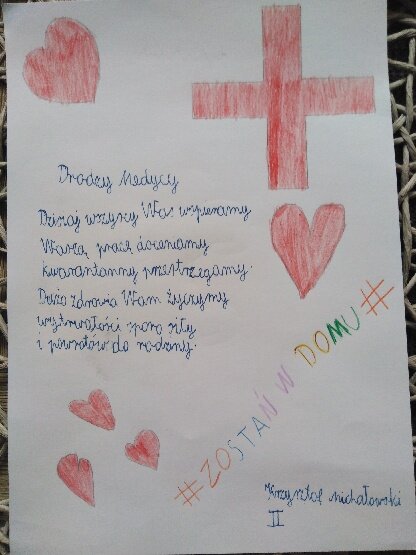 Drodzy Medycy
Dzisiaj wszyscy Was wspieramy
Waszą pracę doceniamy
kwarantanny przestrzegamy.
Dużo zdrowia Wam życzymy
wytrwałości sporo siły
i powrotów do rodziny.
#ZOSTAŃ W DOMU#
Krzysztof Michałowski
II